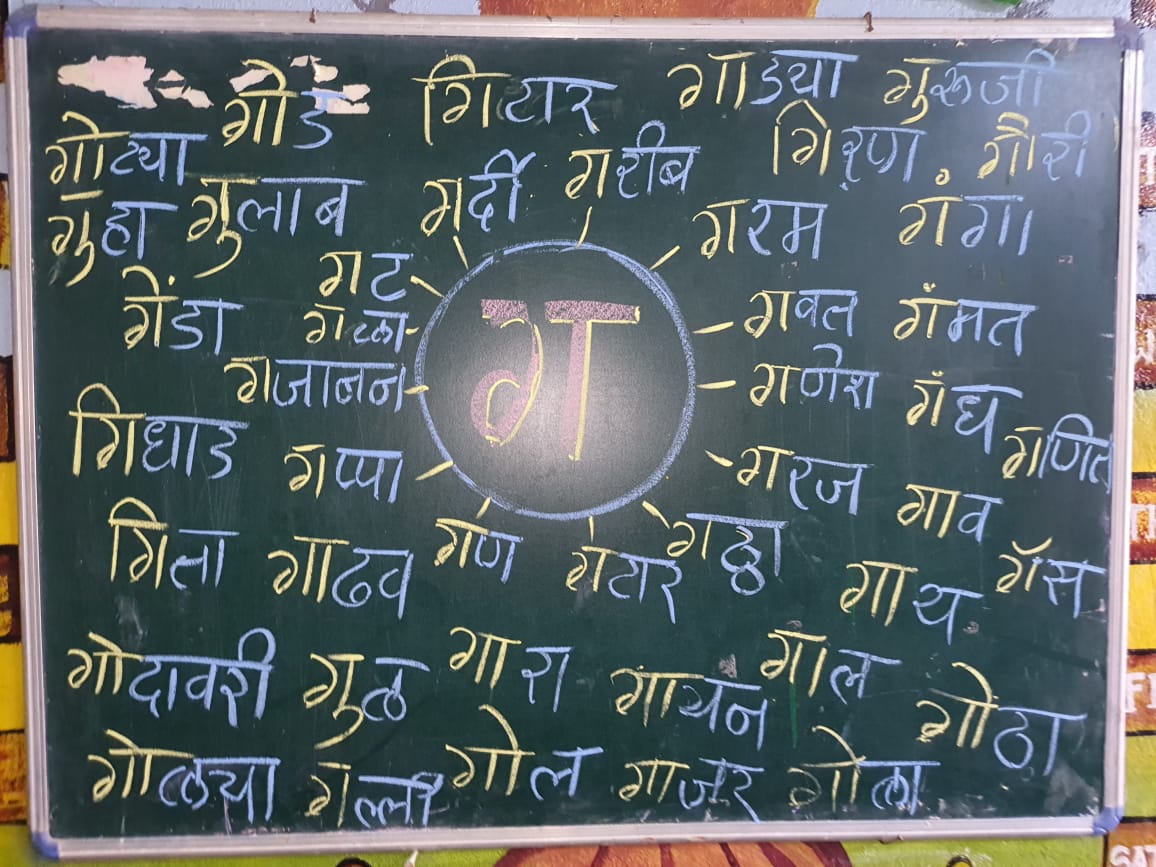 गोड गिटार गाड्या गुरुजी
गोट्या गर्दी गरीब गिरण गौरी
गुहा गुलाब गरम गंगा
गट
गेंडा गल्ला गवत गंमत
गजानन गणेश गंध
गिधाड गप्पा गरज गणित
गाव
गिता गाढव गण गटार गठ्ठा गाय गॅस
गोदावरी गुळ गारा गायन गाल गोठा
गोळ्या गल्ली गोल गाजर गोळा
ग